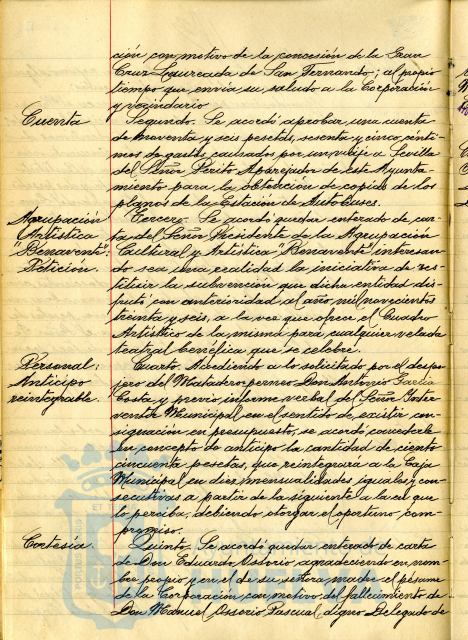 ción con motivo de la concesión de la Gran
Cruz Laureada de San Fernando; al propio
tiempo que envía su saludo a la Corporación
y vecindario.
Cuenta
Segundo. Se acordó aprobar una cuenta
de noventa y seis pesetas, sesenta y cinco cénti-
mos de gastos causados por un viaje a Sevilla
del Señor Perito Aparejador de este Ayunta-
miento para la obtención de copias de los
planos de la Estación de Autobuses.
Agrupación
Artística
"Benavente":
Petición.
Tercero. Se acordó quedar enterado de car-
ta del Señor Presidente de la Agrupación
Cultural y Artística "Benavente" interesan-
do sea una realidad la iniciativa de res-
tituir la subvención que dicha entidad dis-
frutó con anterioridad al año mil novecientos
treinta y seis, a la vez que ofrece el Cuadro
Artístico de la misma para cualquier velada
teatral benéfica que se celebre.
Personal:
Anticipo
reintegrable.
Cuarto. Accediendo a lo solicitado por el despo-
jero del Matadero permeo Don Antonio García
Costa y previo informe verbal del Señor Inter-
ventor Municipal en el sentido de existir con-
signación en presupuesto, se acordó concederle
en concepto de anticipo la cantidad de ciento
cincuenta pesetas, que reintegrará a la Caja
Municipal en diez mensualidades iguales y con-
secutivas a partir de la siguiente a la en que
lo perciba, debiendo otorgar el oportuno com-
promiso.
Cortesía.
Quinto. Se acordó quedar enterado de carta
de Don Eduardo Ossorio agradeciendo en nom-
bre propio y en el de su señora madre el pésame
de la Corporación con motivo del fallecimiento de
Don Manuel Ossorio Pascual, digno Delegado de